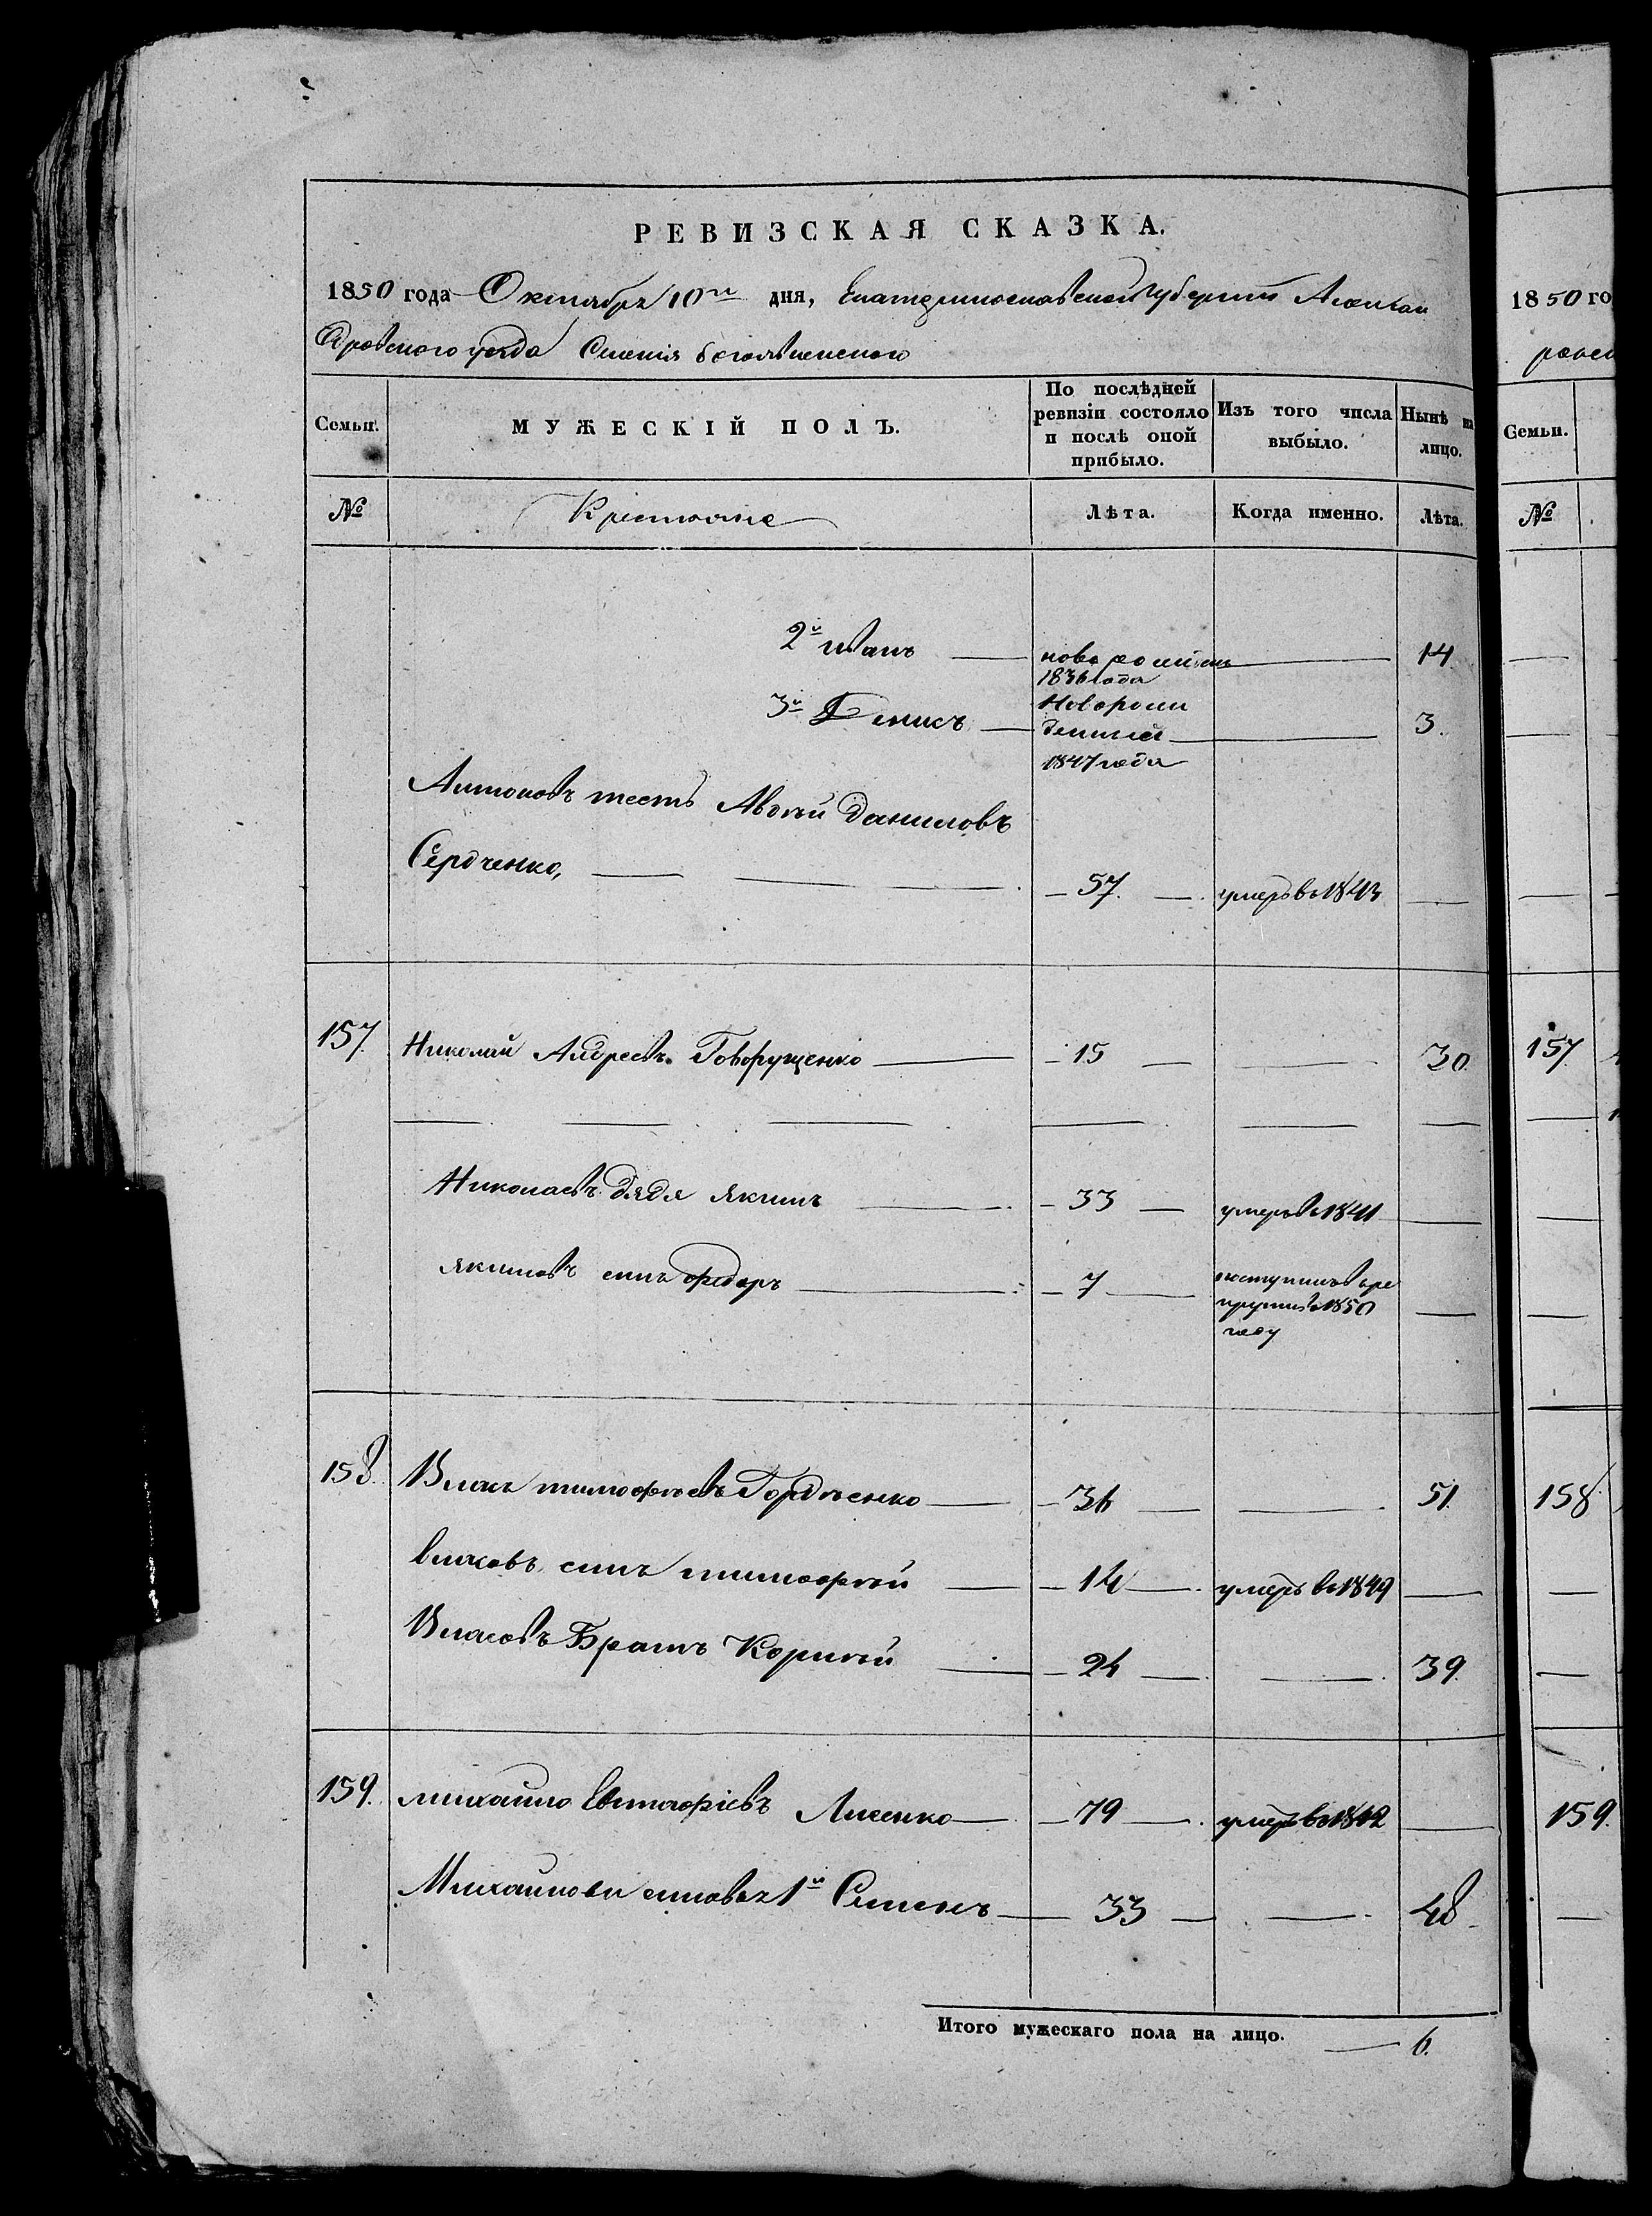 РЕВИЗСКАЯ СКАЗКА.
1850 года Октября 10го дня, Екатеринославской губернии Алексан
дровского уезда Селения
Семьи.
МУЖЕСКІЙ ПОЛЪ.
По послѣдней ревизіи состояло и послѣ оной прибыло.
Изъ того числа выбыло.
Нынѣ на лицо.
№
Крестьяне
Лѣта.
Когда именно.
Лѣта.
2й Иванъ 14
1836 года
3й Денисъ Новорожденный 1847 года 3.
Антоновъ тесть Авдѣй Даниловъ
Сердченко, 57. умеръ в 1843
157. Николай Андреевъ Говорущенко 15 30
Николаевъ дядя Якимъ 33 умеръ в 1841
Якимовъ синъ Федоръ 7 поступилъ в рекруты в 1850 году
158. Власъ Тимофѣевъ Гордѣенко 36 51.
Власовъ синъ Тимофѣй 14 умеръ в 1849
Власовъ Братъ Корнѣй 24 39.
159. Михайло Евтифіевъ Лисенко 79 умеръ в 1842
Михайлови синовья 1й Семенъ 33 48
Итого мужескаго пола на лицо. 6.
1850 го
Семьи.
№
157
158
159.